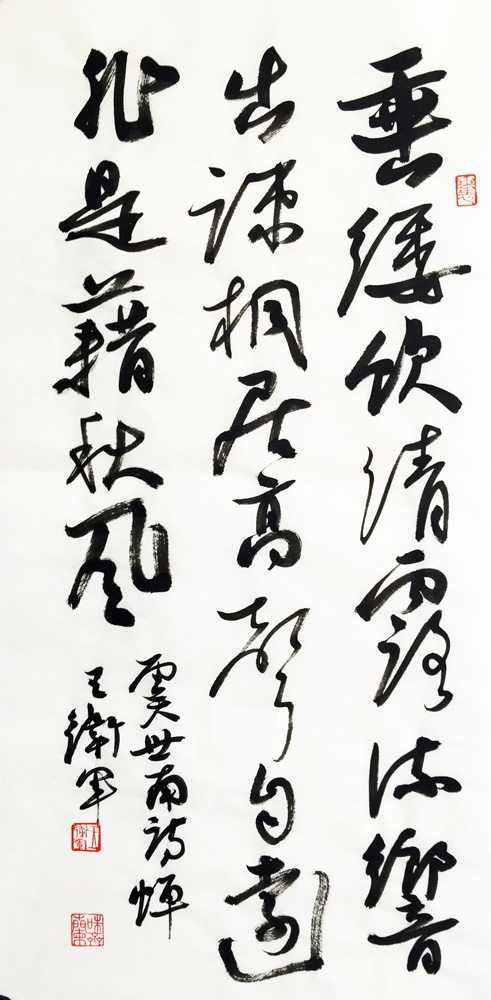 垂緌飲清露流響
出疎桐居高聲自遠
非是藉秋風
虞世南詩蟬
王衛軍